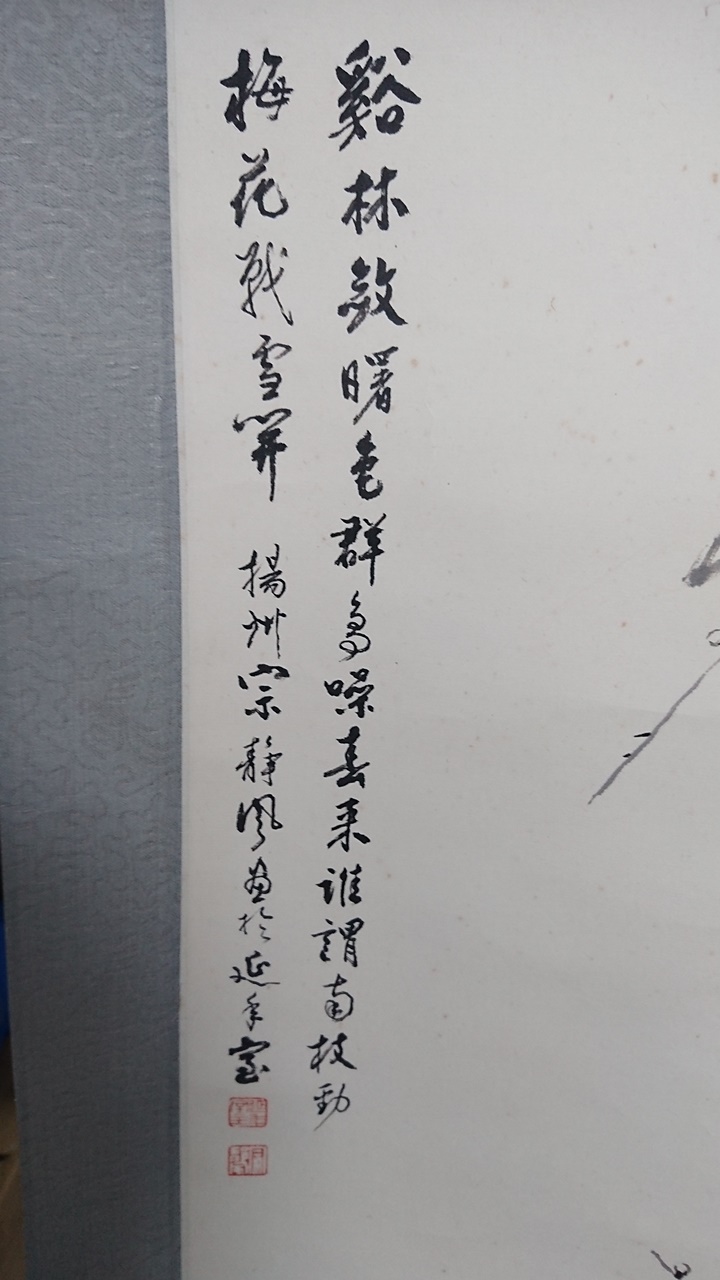 谿林斂曙色群鳥噪喜来誰謂南枝勁
梅花戰雪開 揚州宗靜風畫於延年室